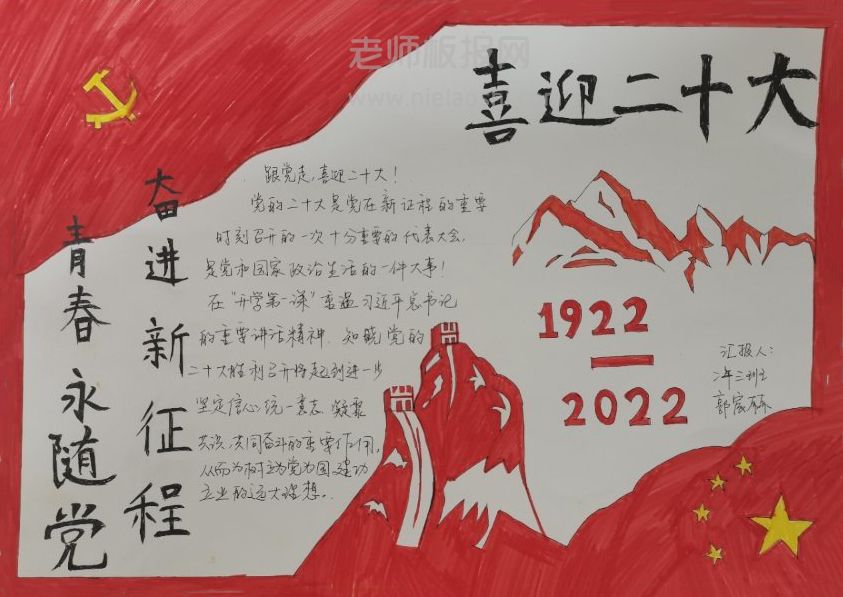 老师板报网
喜迎二十大
奋进新征程
青春永随党
跟党走,喜迎二十大!
党的二十大是党在新征程的重要
时刻召开的一次十分重要的代表大会,
是党和国家政治生活的一件大事!
在“开学第一课”重温习近平总书记
的重要讲话精神,知晓党的
二十大胜利召开将起到进一步
坚定信心统一意志,凝聚
共识,共同奋斗的重要作用,
从而为树立为党为国建功
立业的远大理想.
1922
2022
汇报人:
年三班
郭家